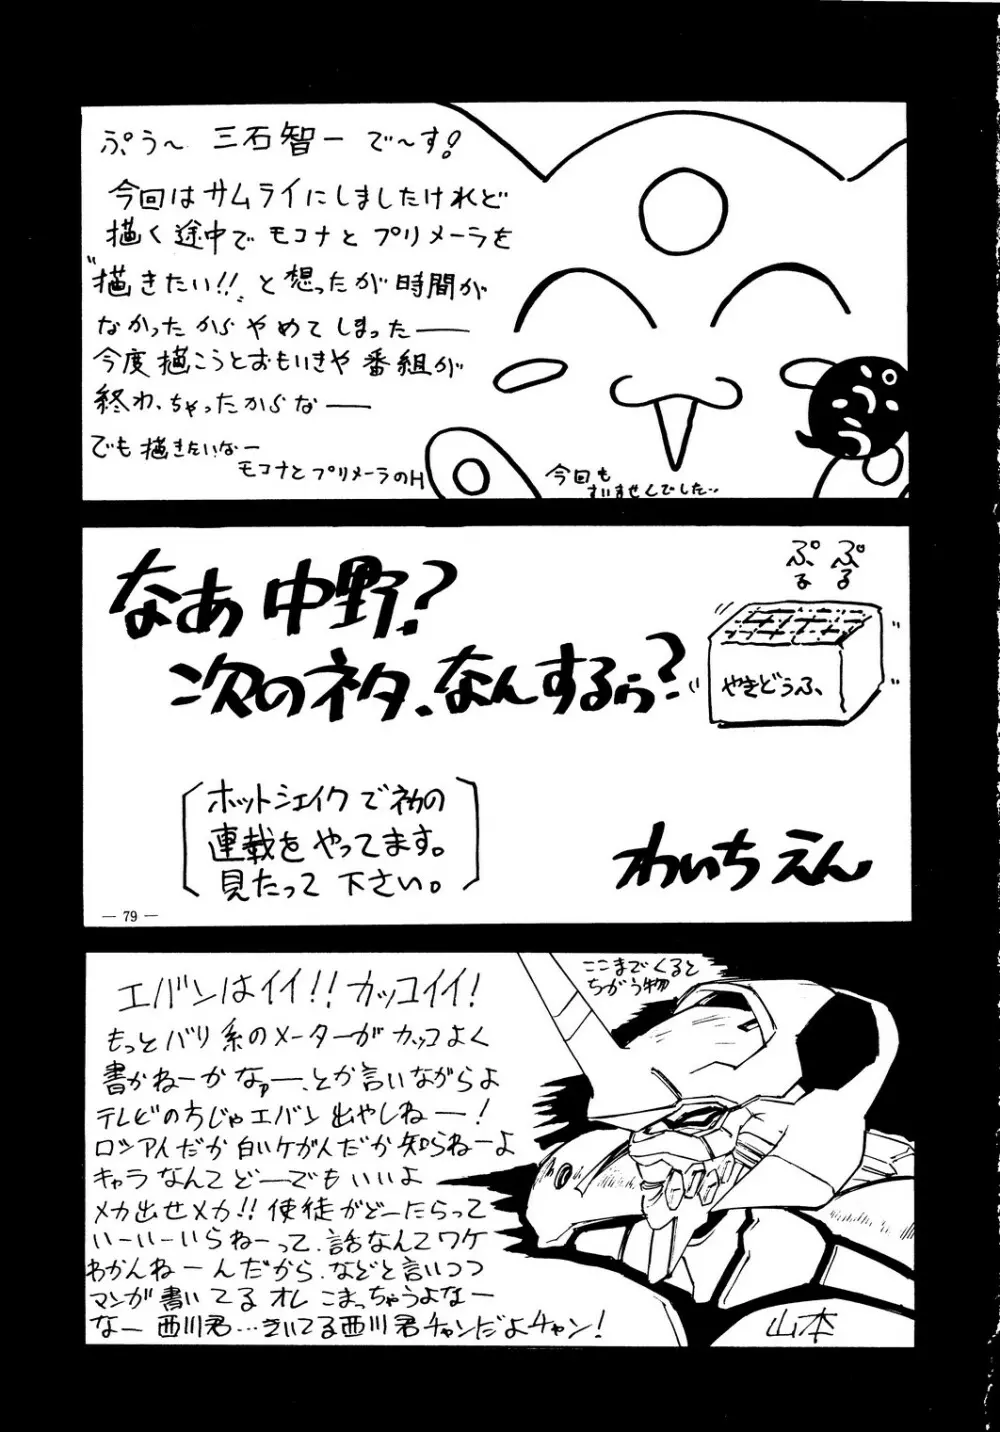 ぷぅ〜 三石智一 で〜す!
今回はサムライにしましたけれど
描く途中でモコナと プリメーラを
“描きたい!!„ と想ったが時間が
なかったからやめてしまった——
今度描こうとおもいきや番組が
終わっちゃったからな——
でも描きたいなー
モコナとプリメーラのH
今回も
すいませんでした‥
なぁ中野?
次のネタ、なんするら?
ぷる
ぷる
やきどうふ、
ホットシェイクで初の
連載をやってます。
見たって下さい。
わいちえん
— 79 —
エバンはイイ!! カッコイイ!
ここまでくると
ちがう物
もっとバリ系のメーターがカッコよく
書かねーかなァー、とか言いながらよ
テレビのちじゃエバン出やしねー!
ロシア人だか白いケがんだか知らねーよ
キャラなんてどーでもいいよ
メカ出せメカ!! 使徒がどーたらって
いーいーいらねーって、話なんてワケ
わかんねーんだから、などと言いつつ
マンガ書いてるオレこまっちゃうよなー
なー西川君…きいてる西川君チャンだよチャン!
山本